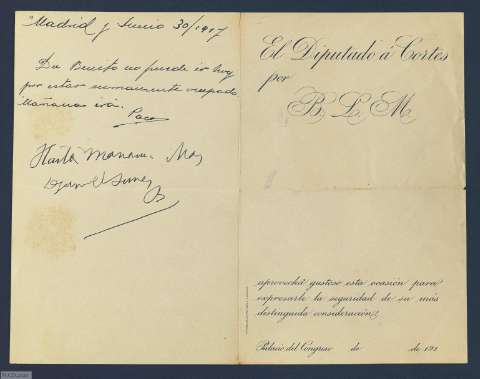 Madrid y Junio 30/1917
Dn Benito no puede ir hoy
por estar sumamente ocupado
Mañana irá.
Paco
Hasta mañana.
El Diputado á Cortes
por
B. L. M.
aprovecha gustoso esta ocasión para
expresarle la seguridad de su más
distinguida consideración.
Palacio del Congreso de de 191